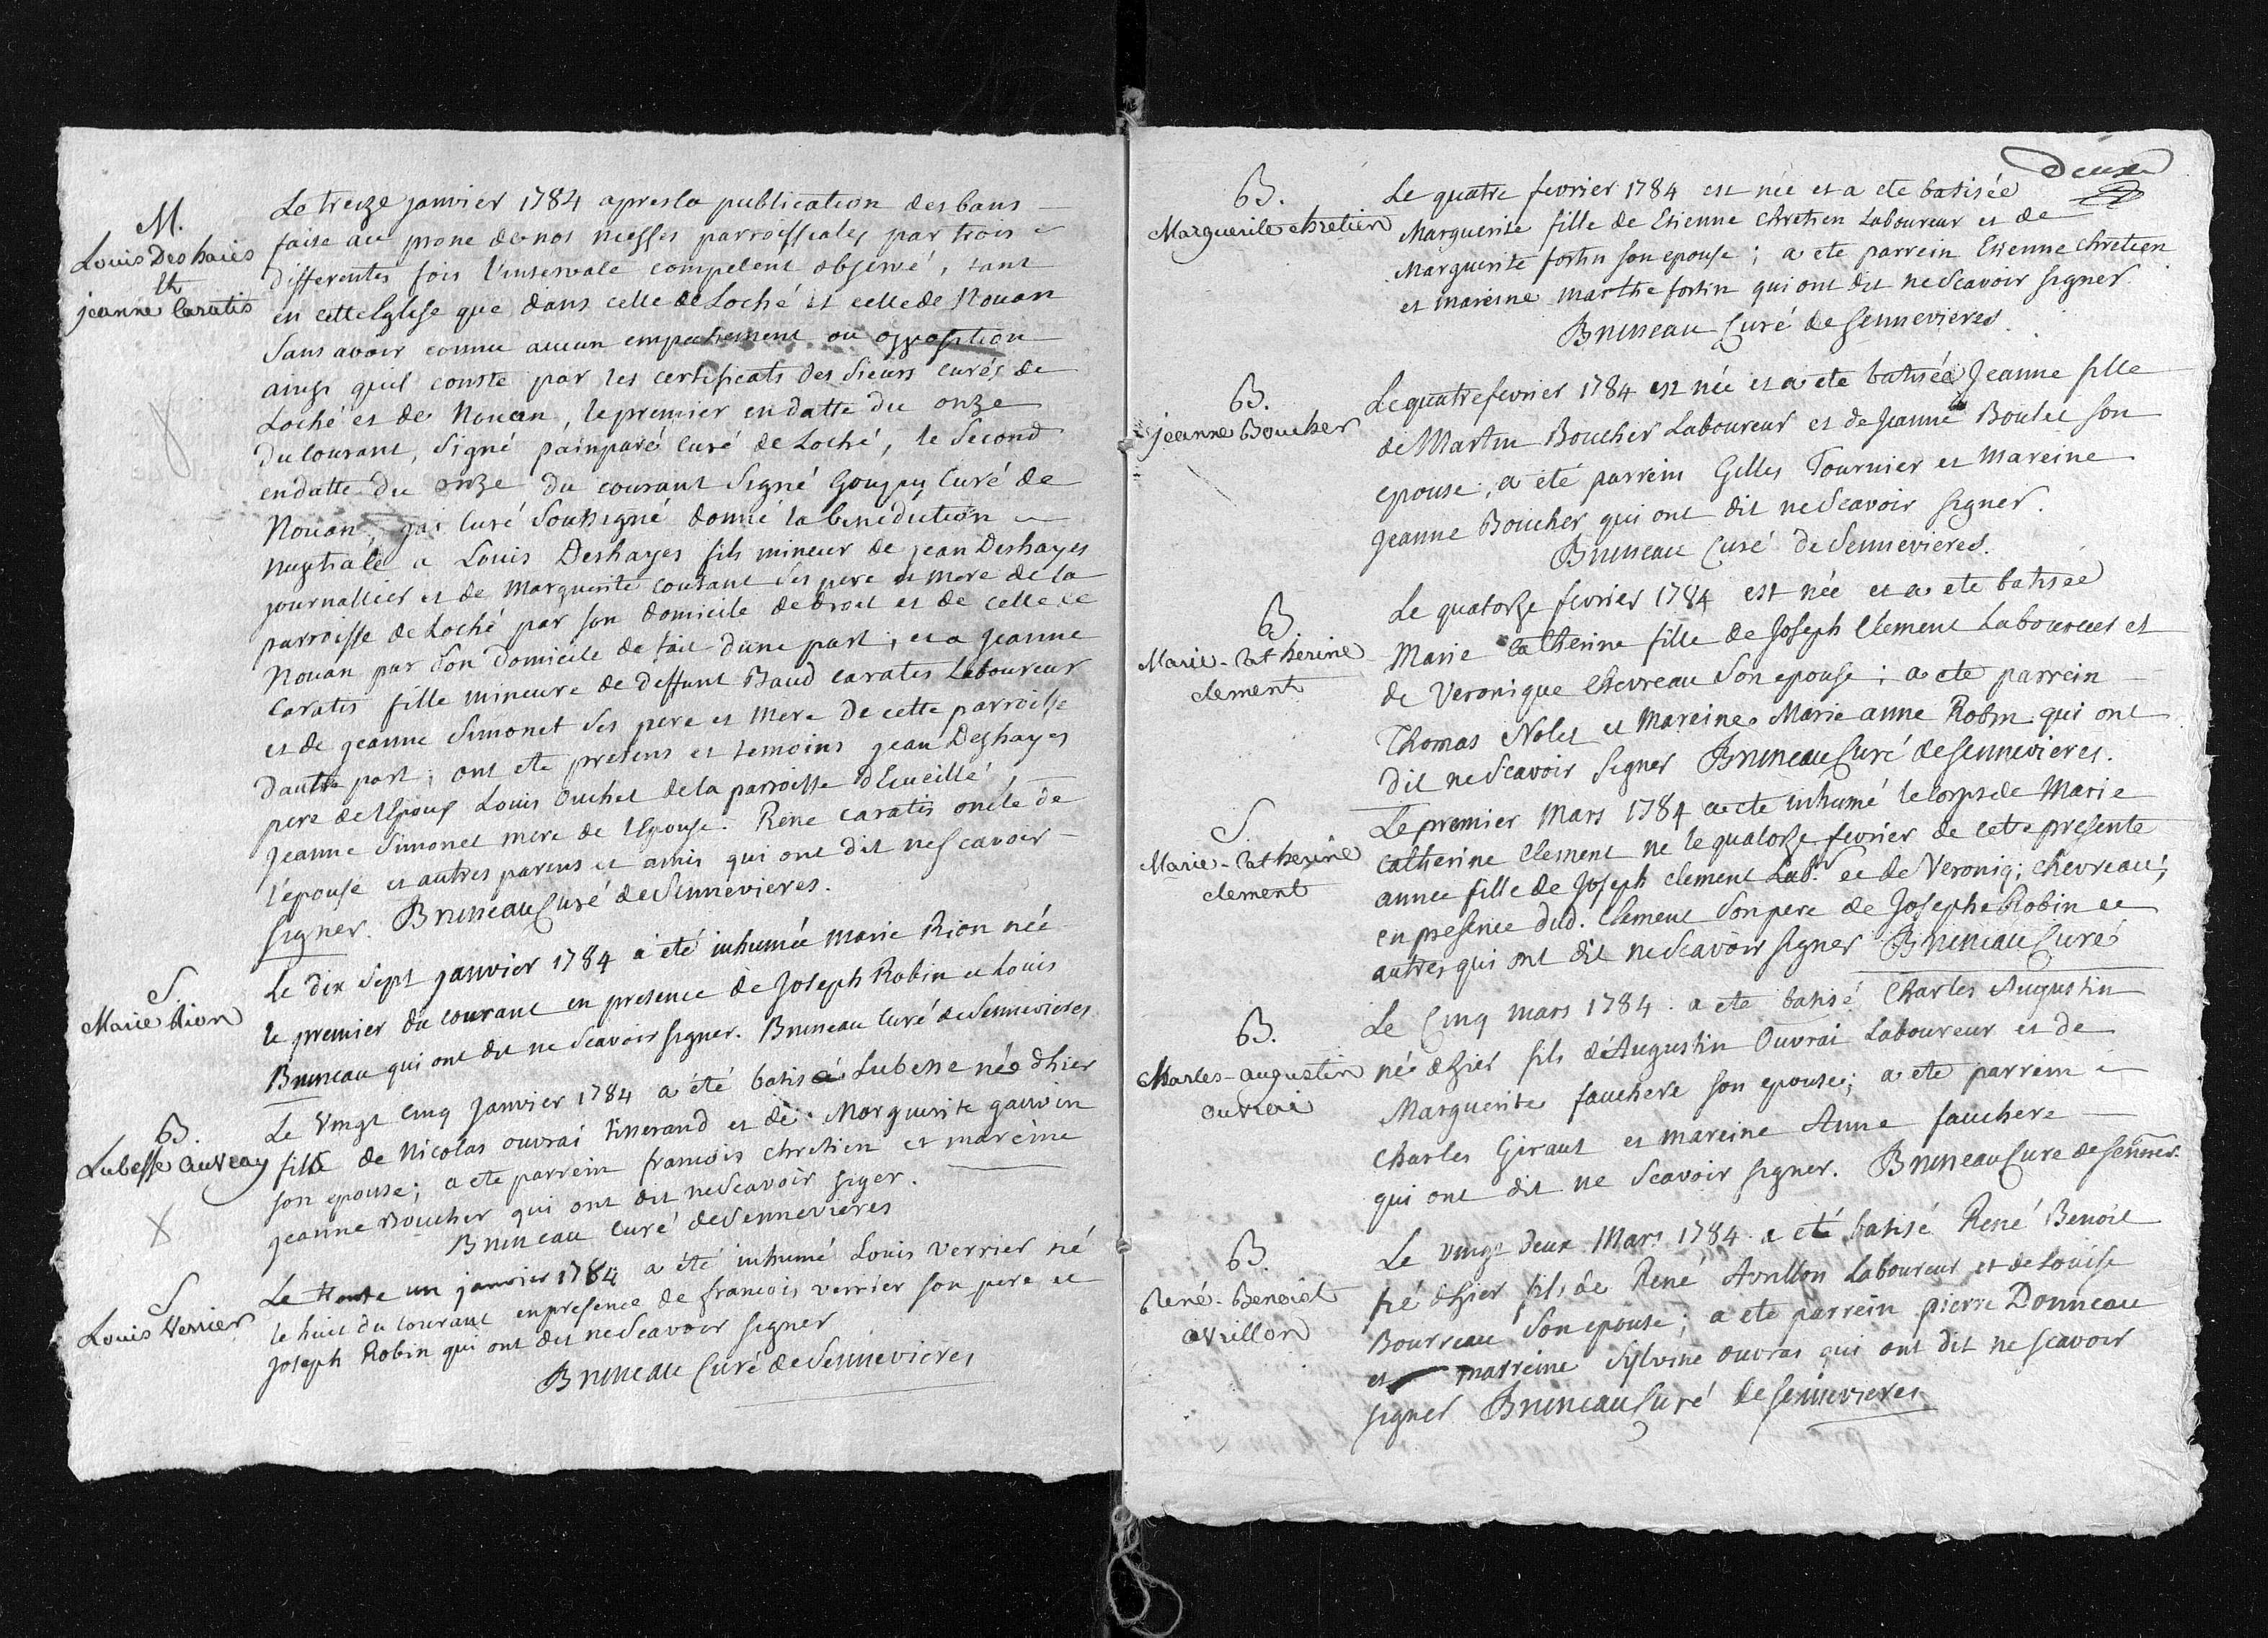 M.
Louis Deshaies
et
jeanne Caratis
Le treize janvier 1784 apres la publication des bans
faite au prone de nos messes parroissiales par trois
differentes fois l'intervale competent observé, tant
en cette Eglise que dans celle de Loché et celle de Nouan
Sans avoir connu aucun empechement ou opposition
ainsi quil conste par les certificats des Sieurs curés de
Loché et de Nouan, le premier en datte du onze
du courant, Signé painparé curé de Loché, le Second
en datte du onze du courant Signé Curé de
Nouan, j'ai Curé Soussigné donné la benediction
nuptiale a Louis Deshayes fils mineur de jean Deshayes
journallier et de Marguerite coutant Ses pere et mere de la
parroisse de Loché par son domicile de droit et de celle de
Nouan par son domicile de fait d'une part; et a jeanne
Caratis fille mineure de deffunt Baud caratis Laboureur
et de jeanne Simonet Ses pere et mere de cette parroisse
d'autre part; ont ete presens et temoins jean Deshayes
pere de l'Epoux Louis Ouchet de la parroisse d'Ecueillé,
Jeanne Simonet mere de l'Epouse. Rene caratis oncle de
l'épouse et autres parens et amis qui ont dit ne scavoir
signer. Bruneau Curé de Sennevieres.
S.
Marie Rion
Le dix Sept janvier 1784 a été inhumée marie Rion née
le premier du courant en presence de Joseph Robin et Louis
Bruneau qui ont dit ne Scavoir signer. Bruneau Curé de Sennevieres
B.
Lubesse Auvray
Le Vingt Cinq Janvier 1784 a été batisée Lubesse née d'hier
fille de Nicolas ouvrai tisserand et de Marguerite gauvin
son epouse; a ete parrein francois chretien et mareine
jeanne Boucher qui ont dit ne Scavoir siger.
Bruneau Curé de Sennevieres
S
Louis Verrier
Le trente un janvier 1784 a été inhumé Louis verrier né
le huit du courant en presence de francois verrier son pere et
joseph Robin qui ont dit ne Scavoir signer
Bruneau Curé de Sennevieres
Deux
B.
Marguerite chretien
Le quatre fevrier 1784 est née et a ete batisée
Marguerite fille de Etienne chretien Laboureur et de
Marguerite fortin son epouse; a ete parrein Etienne chretien
et mareine marthe fortin qui ont dit ne Scavoir signer
Bruneau Curé de Sennevieres.
B.
jeanne Boucher
Le quatre fevrier 1784 est née et a ete batisée Jeanne fille
de Martin Boucher Laboureur et de Jeanne Boutet son
epouse; a été parrein Gilles Tournier et Mareine
Jeanne Boucher qui ont dit ne Scavoir signer.
Bruneau Curé de Sennevieres.
B
Marie-Catherine
clement
Le quatorze fevrier 1784 est née et a ete batisée
Marie Catherine fille de Joseph Clement Laboureur et
de Veronique Chevreau Son epouse; a ete parrein
Thomas Nolet et Mareine Marie anne Robin qui ont
dit ne Scavoir Signer Bruneau Curé de Sennevieres.
S.
Marie-Catherine
clement
Le premier Mars 1784 a ete inhumé le corps de Marie
Catherine Clement ne le quatorze fevrier de cette presente
annee fille de Joseph clement Labr. et de Veroniq; chevreau;
en presence dud. Clement Son pere de Josephe Robin et
autres qui ont dit ne Scavoir signer Bruneau Curé
B.
Charles-augustin
ouvrai
Le Cinq mars 1784 a ete batisé Charles Augustin
né d'hier fils d'Augustin Ouvrai Laboureur et de
Marguerite fauchere son epouse; a ete parrein
Charles Giraut et mareine Anne fauchere
qui ont dit ne Scavoir signer. Bruneau Cure de Sennev.
B.
René-Benoist
avrillon
Le vingt deux Mars 1784 a eté batisé René Benoit
né d'hier fils de René Avrillon Laboureur et de Louise
Bourreau Son epouse; a ete parrein pierre Donneau
et marreine Sylvine ouvrai qui ont dit ne scavoir
signer Bruneau Curé de Sennevieres